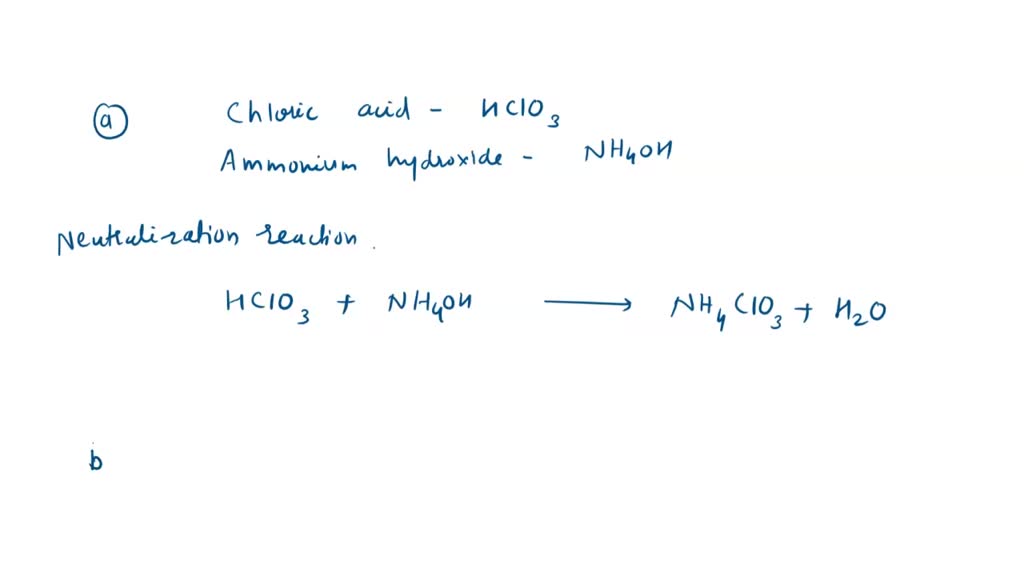 ⓐ Chloric acid - HClO₃
Ammonium hydroxide - NH₄OH
Neutralization reaction.
HClO₃ + NH₄OH ⟶ NH₄ClO₃ + H₂O
b